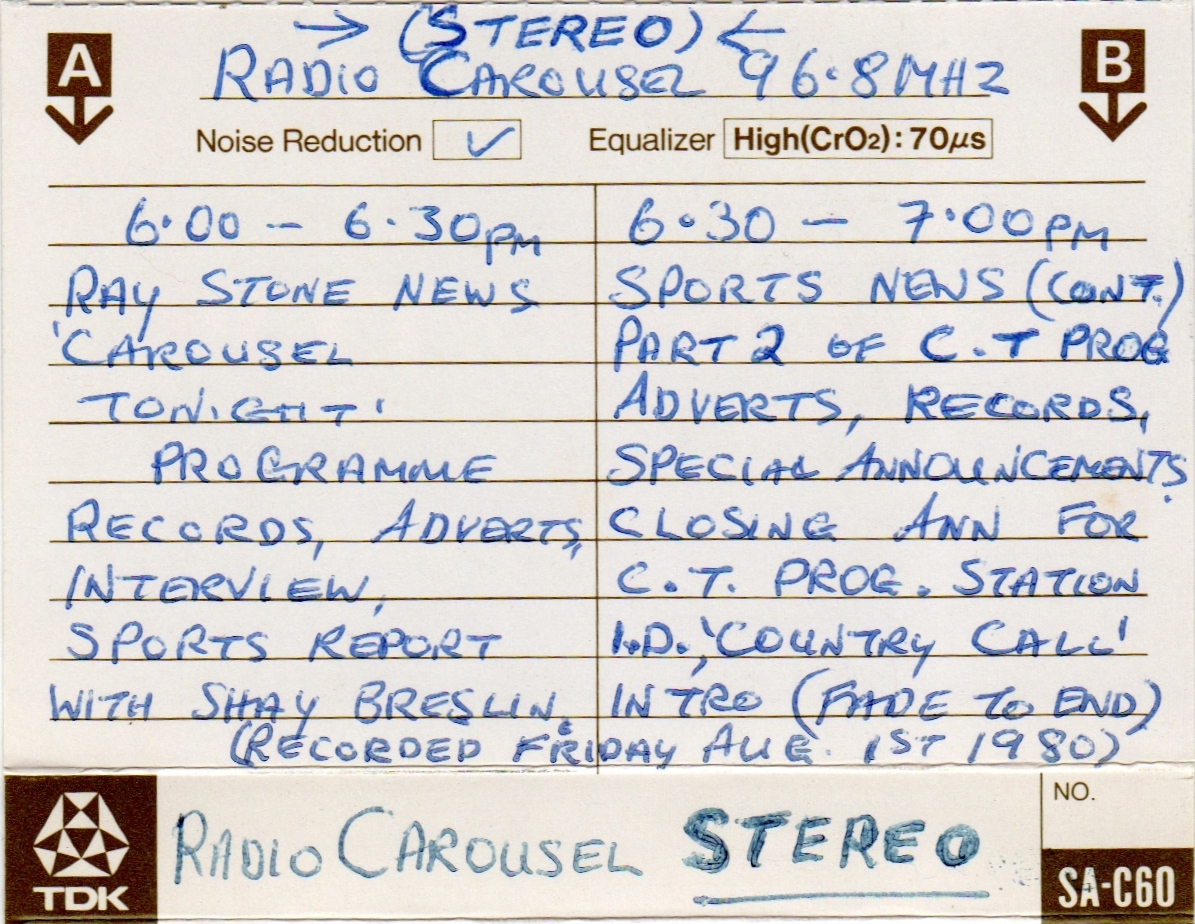 → (STEREO) ←
A
RADIO CAROUSEL 96.8MHZ
B
Noise Reduction ✓ Equalizer High(CrO2): 70µs
6.00 - 6.30PM
RAY STONE NEWS
'CAROUSEL
TONIGHT'
PROGRAMME
RECORDS, ADVERTS,
INTERVIEW,
SPORTS REPORT
WITH SHAY BRESLIN.
6.30 - 7.00PM
SPORTS NEWS (CONT.)
PART 2 OF C.T PROG
ADVERTS, RECORDS,
SPECIAL ANNOUNCEMENTS.
CLOSING ANN FOR
C.T. PROG. STATION
I.D., 'COUNTRY CALL'
INTRO (FADE TO END)
(RECORDED FRIDAY AUG. 1ST 1980)
TDK
RADIO CAROUSEL STEREO
NO.
SA-C60